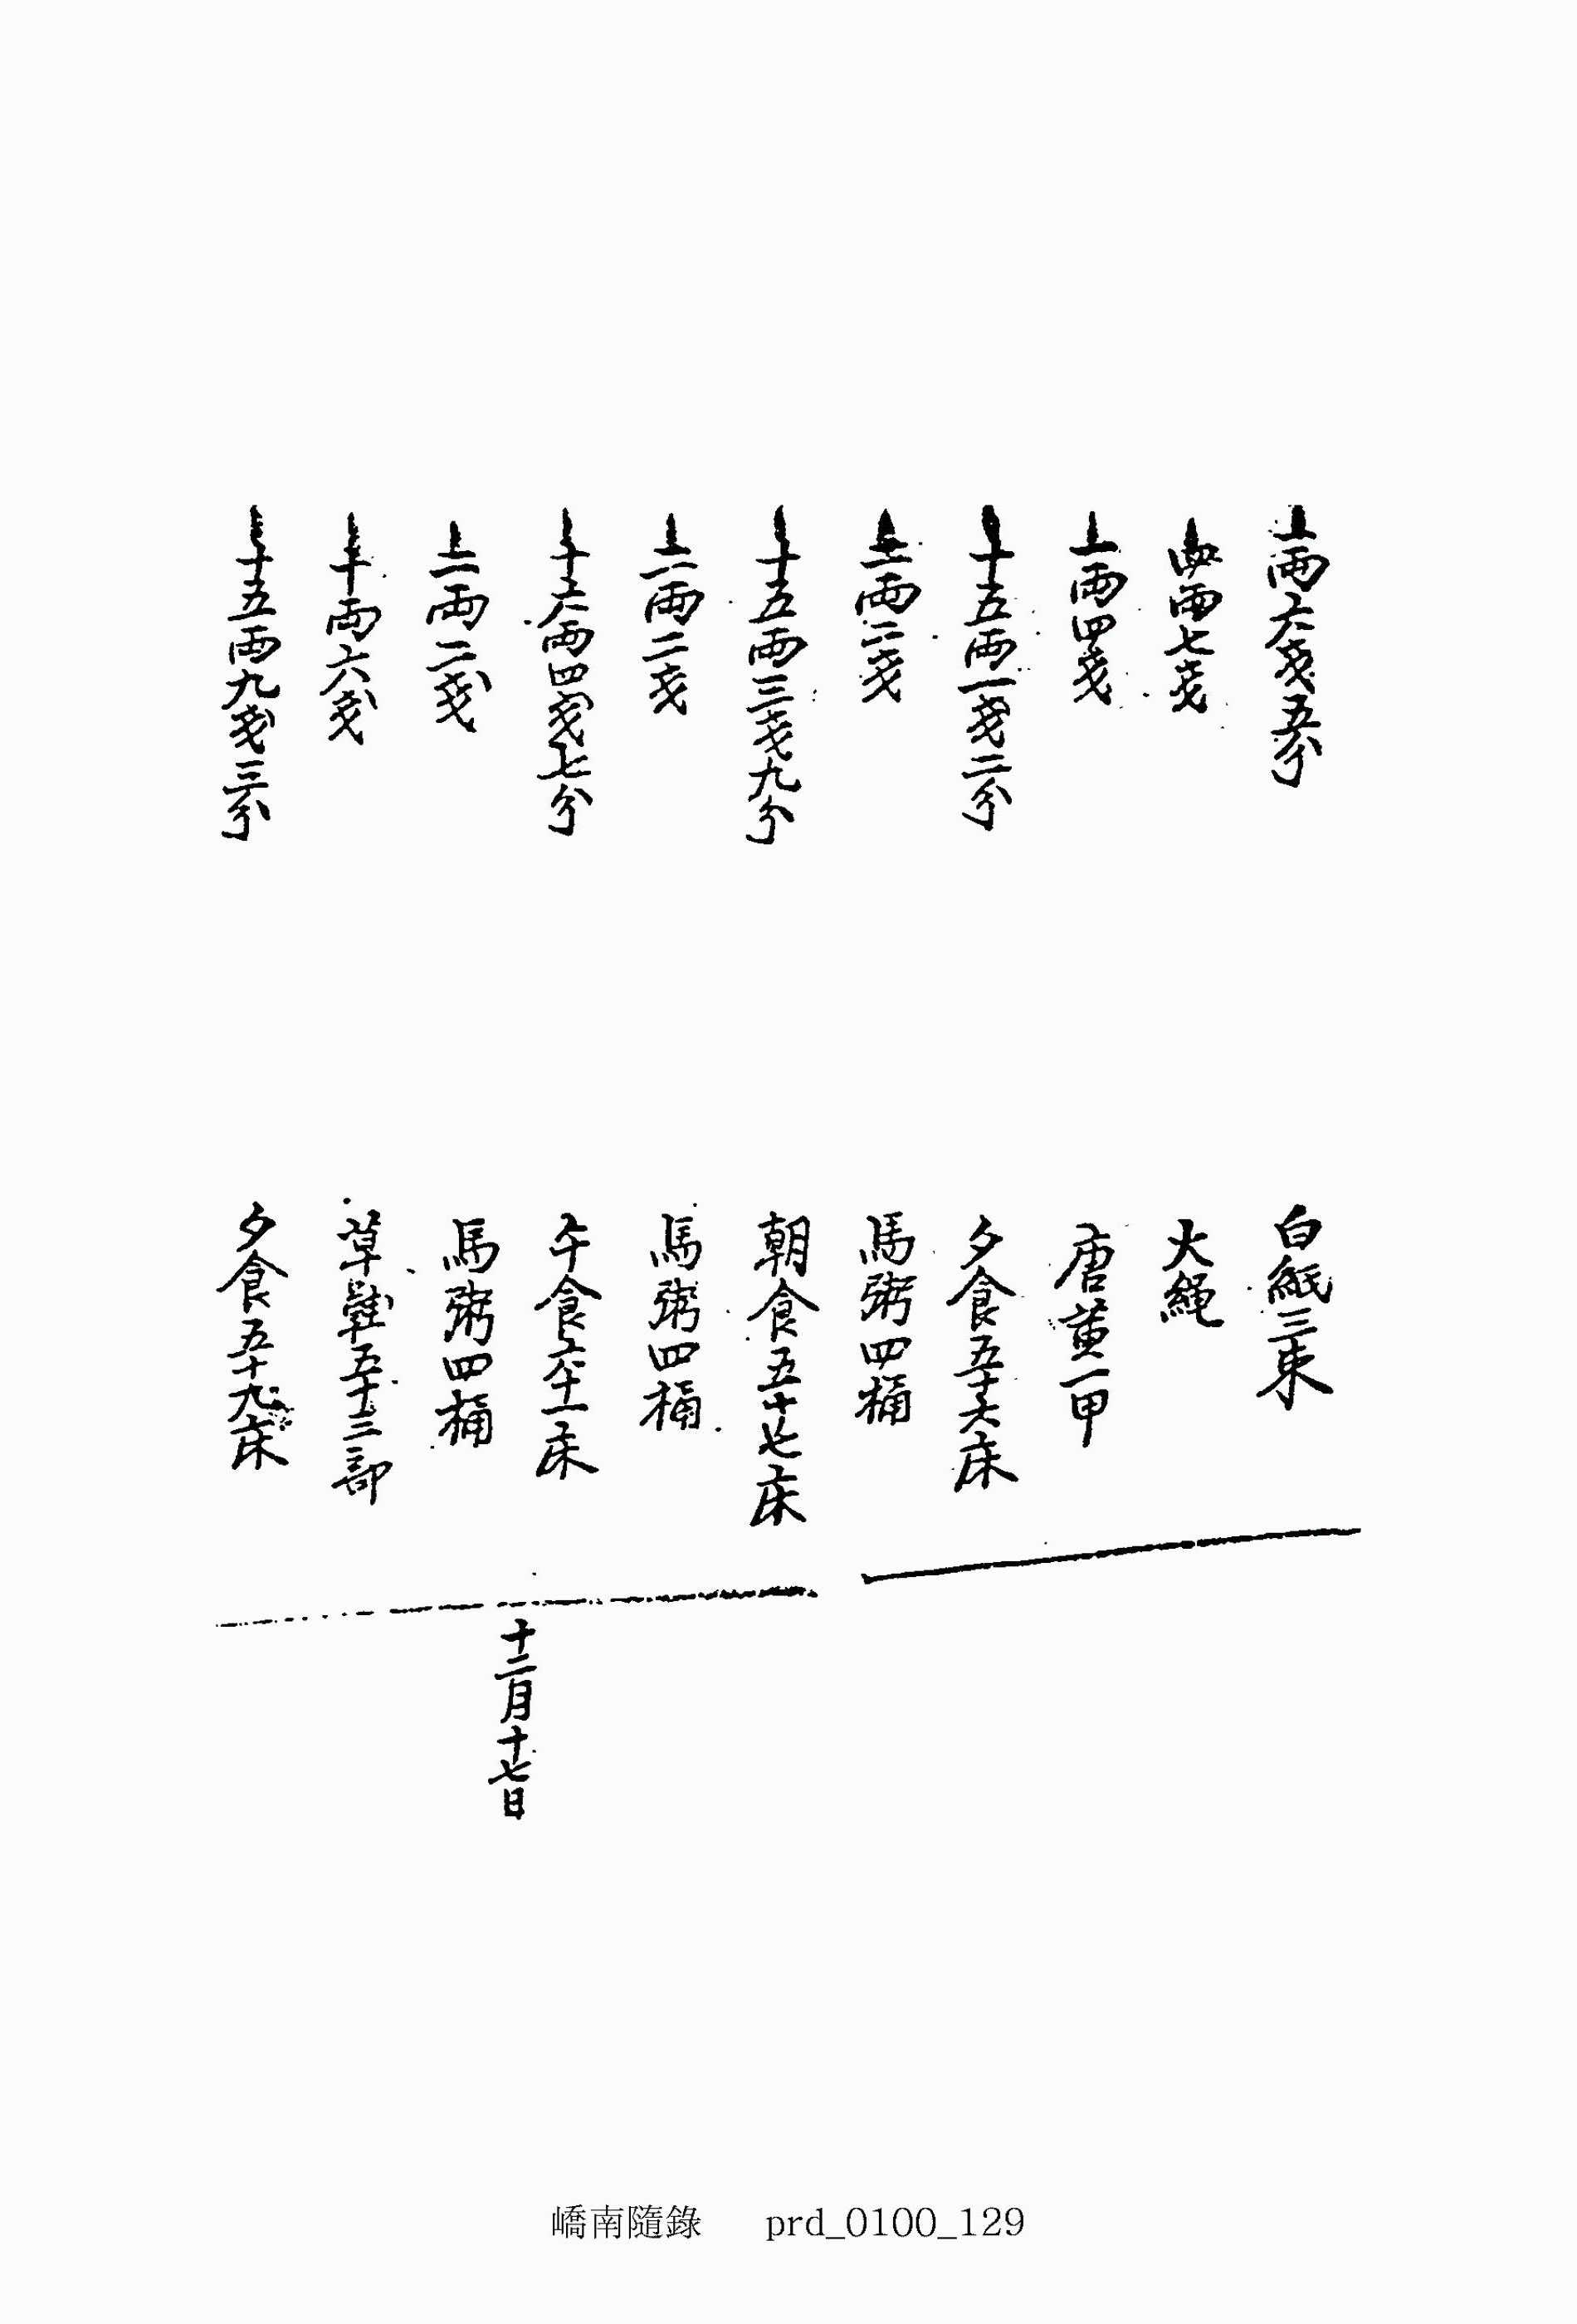 一両六戔五分 白紙三束
四両七戔 大繩
一両四戔 唐黃一甲
十五両一戔二分 夕食五十六床
二両二戔 馬粥四桶
十五両三戔九分 朝食五十七床
二両二戔 馬粥四桶
十六両四戔七分 午食六十一床
二両二戔 馬粥四桶
十両六戔 草鞋五十三部
十五両九戔三分 夕食五十九床
十二月十七日
嶠南隨錄 prd_0100_129